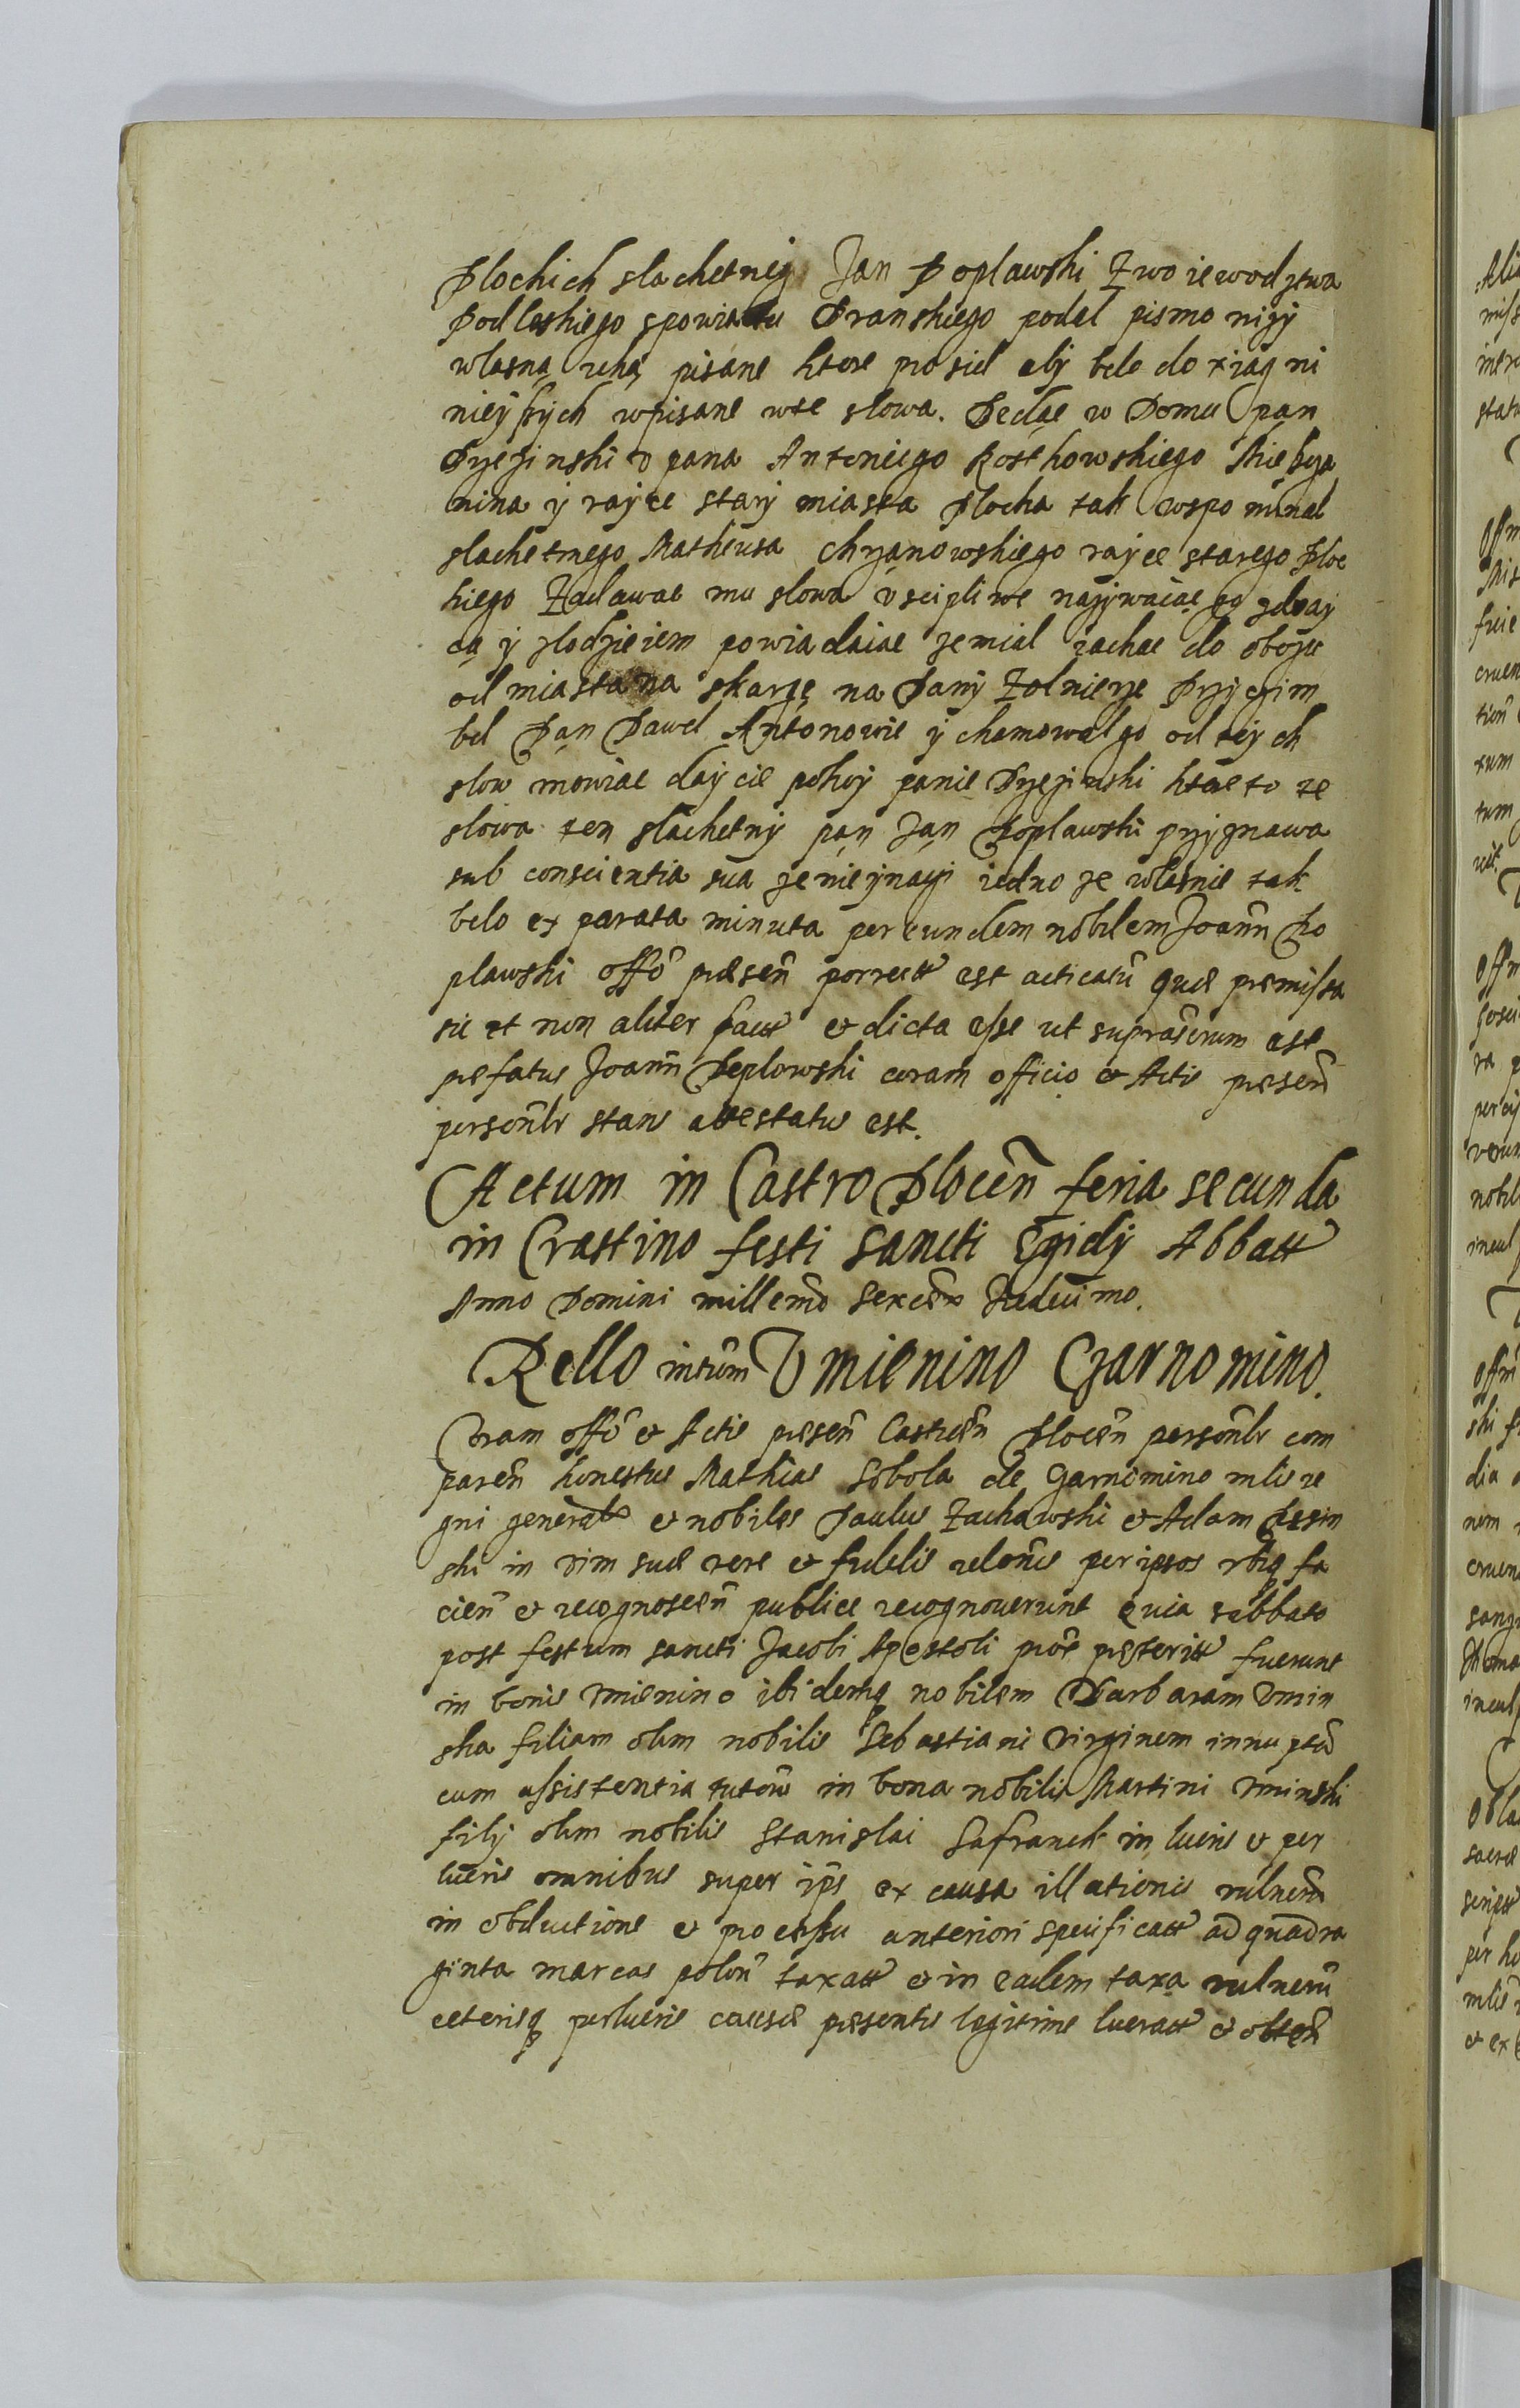 Plockich slachetnÿ Jan Poplawski Z woiewodztwa
Podleskiego spowiatu Branskiego podal pismo nizÿ
wlasną reką pisane ktore prosiel abÿ belo do xiąg ni
nieÿßÿch wpisane wte slowa. Bedąc w Domu pan
Brzezinski v pana Antoniego Rostkowskiego Mießcza
nina ÿ raÿce starÿ miasta Plocka tak wspominal
slachetnego Matheusa Chrzanowskiego raÿce starego Ploc
kiego Zadawac mu slowa vscipliwe nazÿwaiąc go zdraÿ
cą ÿ zlodzieiem powiadaiac ze mial iachac do obozu
od miasta na skargę na Panÿ Zolnierze Przÿ czim
bel Pan Pawel Antonowic ÿ hamowal go od tÿch
slow mowiac daÿcie pokoÿ panie Brzezinski ktore to te
slowa ten slachetnÿ pan Jan Poplawski przÿznawa
sub conscientia sua ze nie ÿnaczÿ iedno ze wlasnie tak
belo ex parata minuta per eundem nobilem Joann̄ Po
plawski offō præsen̄ porrectt est acticatū quæ premissa
sic et non aliter facta et dicta esse ut suprascrium est
præfatus Joann̄ Poplowski coram officio et Actis præsen̄
personlr stans attestatus est.
Actum in Castro Plocen̄ feria secunda
in Crastino festi Sancti Egidÿ Abbatt
Anno Domini millemō Sexcēn Tredecimo.
Rello intum̄ Vmienino Czarnomino.
Coram offō et Actis præsen̄ Castren̄ Plocen̄ personlr com
paren̄ honestus Mathias Sobola de Garnomino mlis re
gni generalis et nobiles Paulus Zachawski et Adam
ski in vim suæ veræ et fidelis relonis per ipsos fa
cien̄ et recognoscen̄ publice recognoverunt quia sabbato
post festum sancti Jacobi Apostoli prōx præteritt fuerunt
in bonis Vmienino ibidemq nobilem Barbaram Vmin
ska filiam olim nobilis Sebastiani virginem innuptā
cum assistentia tutorū in bona nobilis Martini Vminski
filÿ olim nobilis Stanislai Safranek in lucris et per
lucris omnibus super ips ex causa illationis vulnerū
in obductione et processu anteriori specificatt ad quadra
ginta marcas polon̄ taxatt et in eadem taxa vulnerū
ceterisq perlucris causæ præsentis legitime lucratt et obten̄